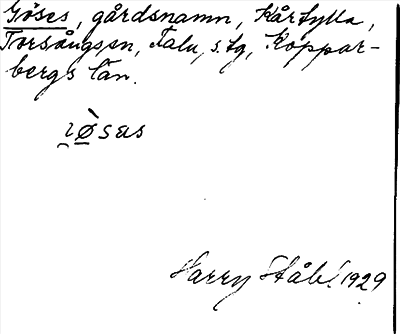 Göses, gårdsnamn, Kårtylla,
Torsångs sn, Falu, s. tg, Koppar-
bergs län.
Harry Ståhl 1929